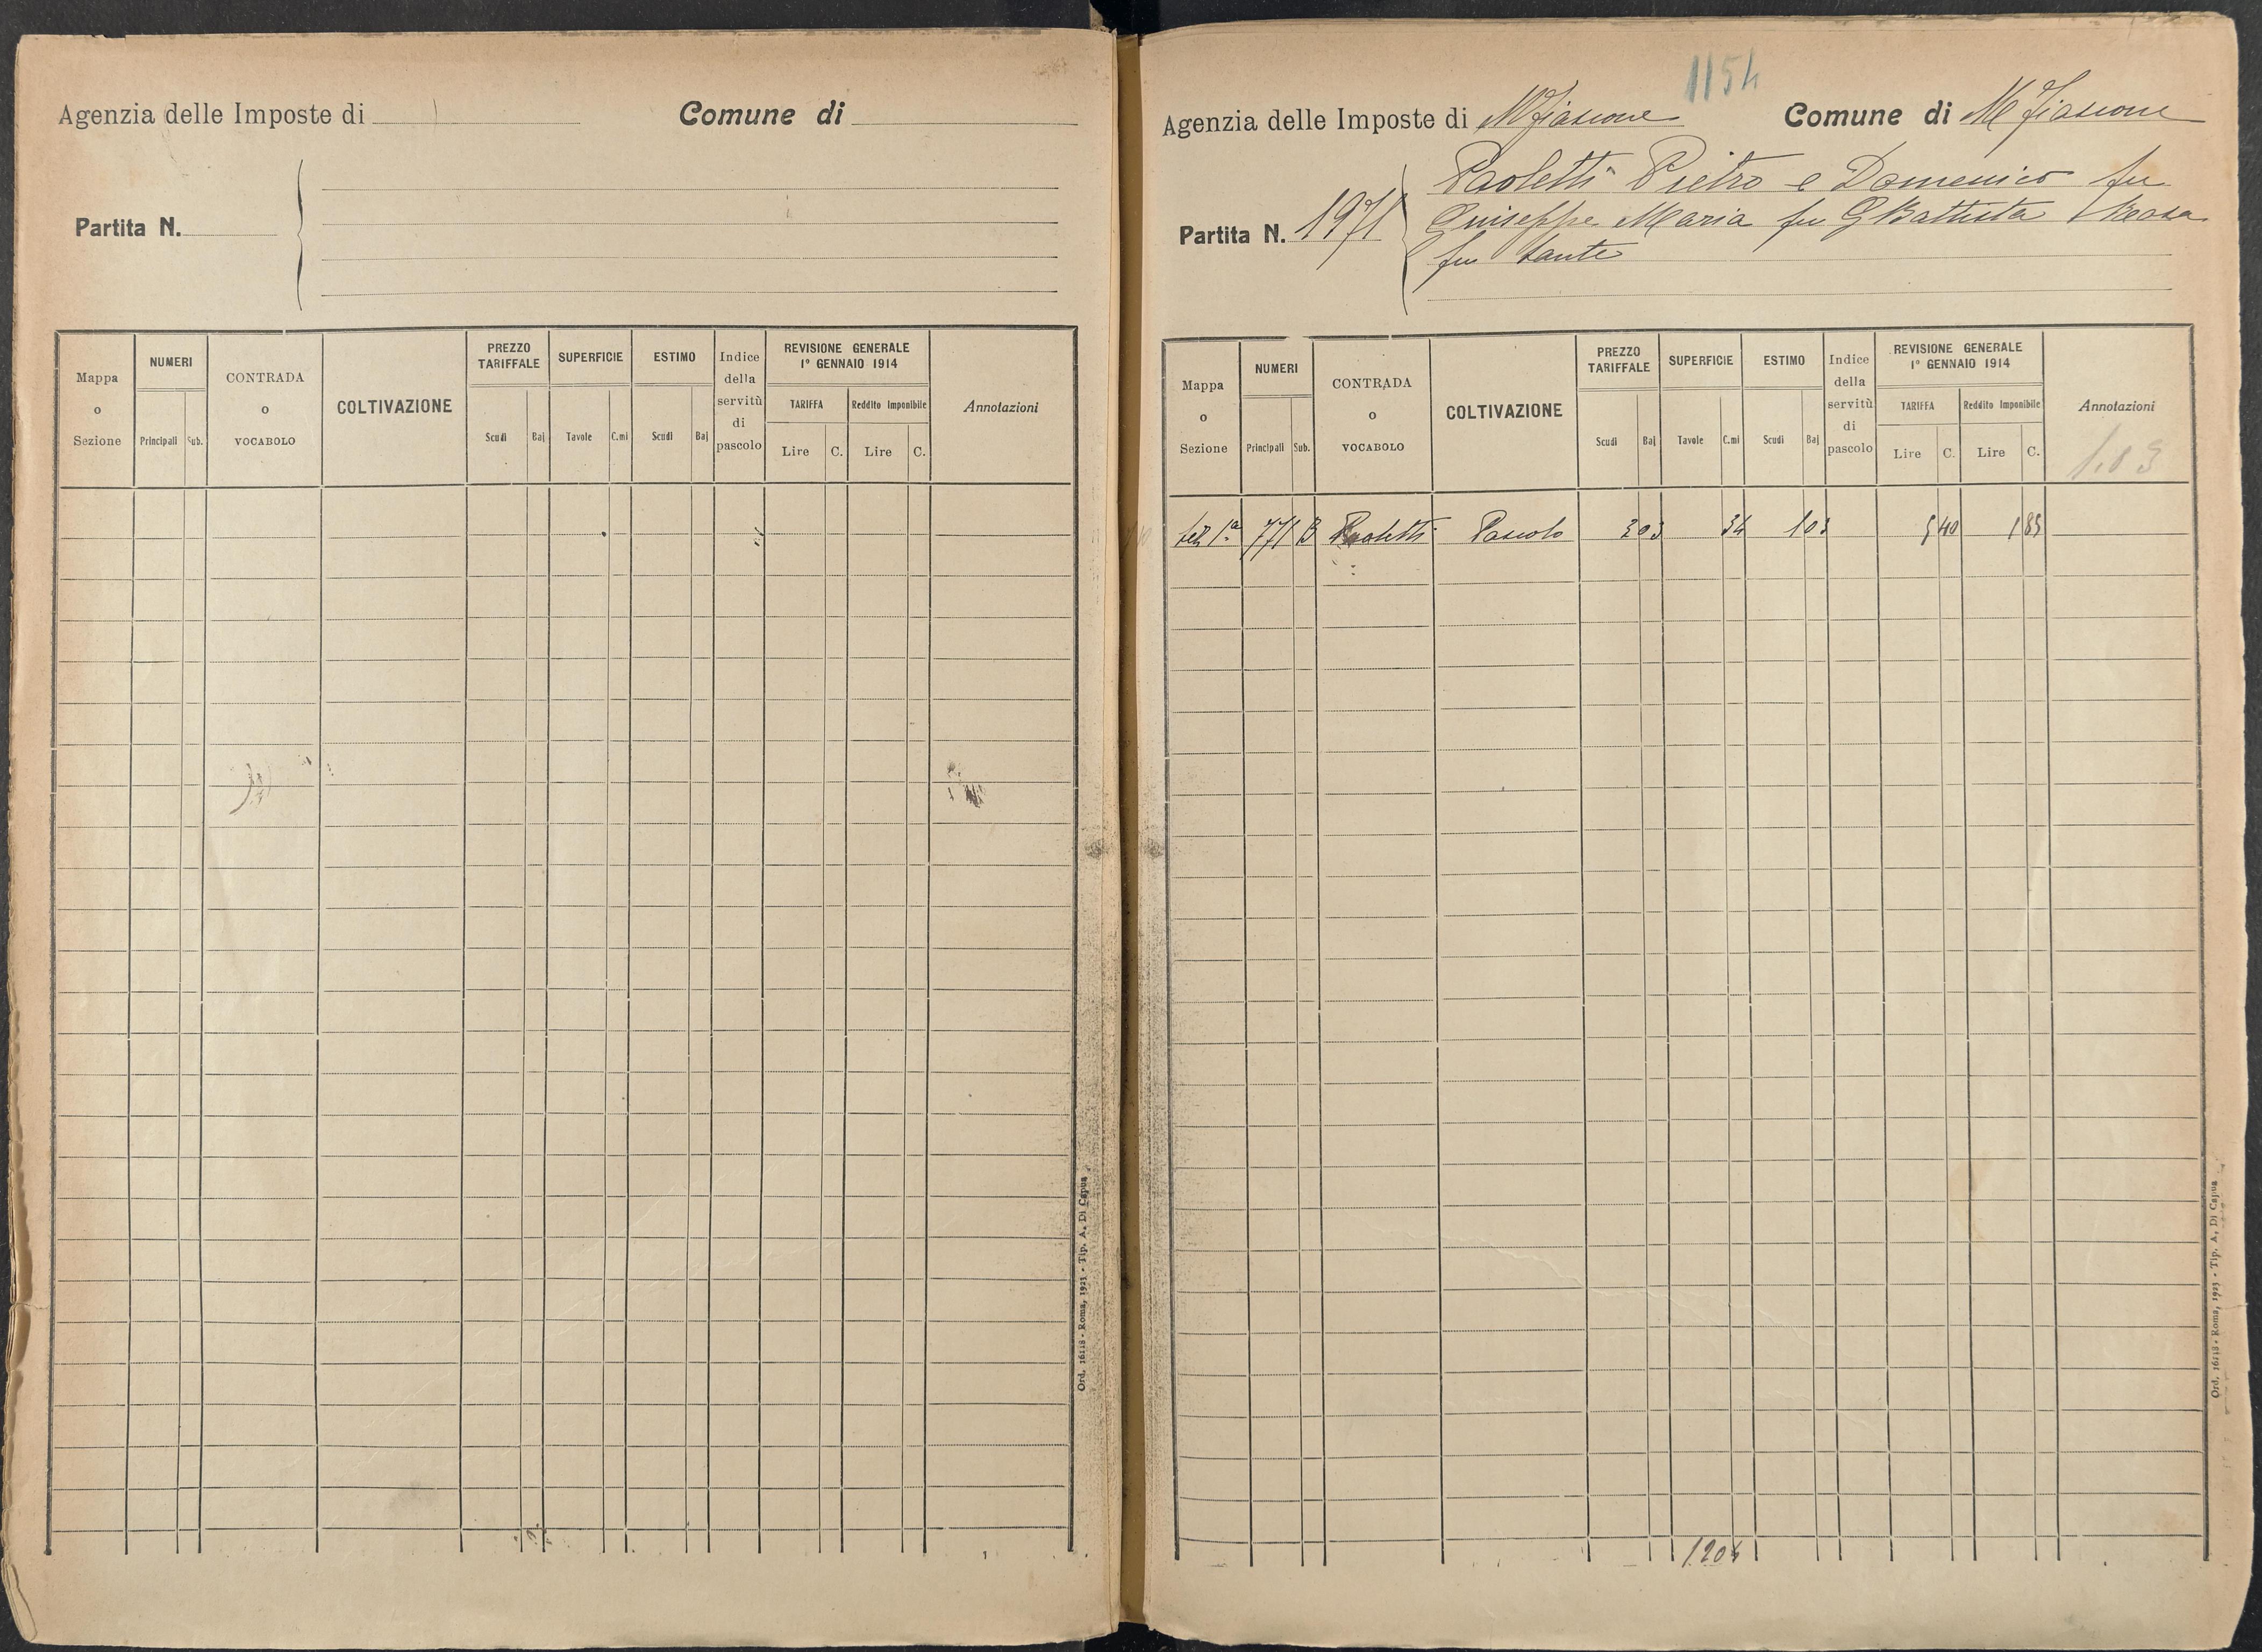 Agenzia delle Imposte di
Comune di
Partita N.
Mappa o Sezione
NUMERI
Principali Sub.
CONTRADA o VOCABOLO
COLTIVAZIONE
PREZZO TARIFFALE
Scudi Baj
SUPERFICIE
Tavole C.mi
ESTIMO
Scudi Baj
Indice della servitù di pascolo
REVISIONE GENERALE
1° GENNAIO 1914
TARIFFA
Lire C.
Reddito Imponibile
Lire C.
Annotazioni
Ord. 16118 - Roma, 1923 - Tip. A. Di Capua
1154
Agenzia delle Imposte di Mfiascone
Comune di M Fiascone
Partita N. 1971
Paoletti Pietro e Domenico fu
Giuseppe Maria fu GBattista Rosa
fu Sante
Mappa o Sezione
NUMERI
Principali Sub.
CONTRADA o VOCABOLO
COLTIVAZIONE
PREZZO TARIFFALE
Scudi Baj
SUPERFICIE
Tavole C.mi
ESTIMO
Scudi Baj
Indice della servitù di pascolo
REVISIONE GENERALE
1° GENNAIO 1914
TARIFFA
Lire C.
Reddito Imponibile
Lire C.
Annotazioni
1.83
Sez 1ª 771 B Paoletti Pascolo 303 34 103 5 40 1 83
1204
Ord. 16118 - Roma, 1923 - Tip. A. Di Capua